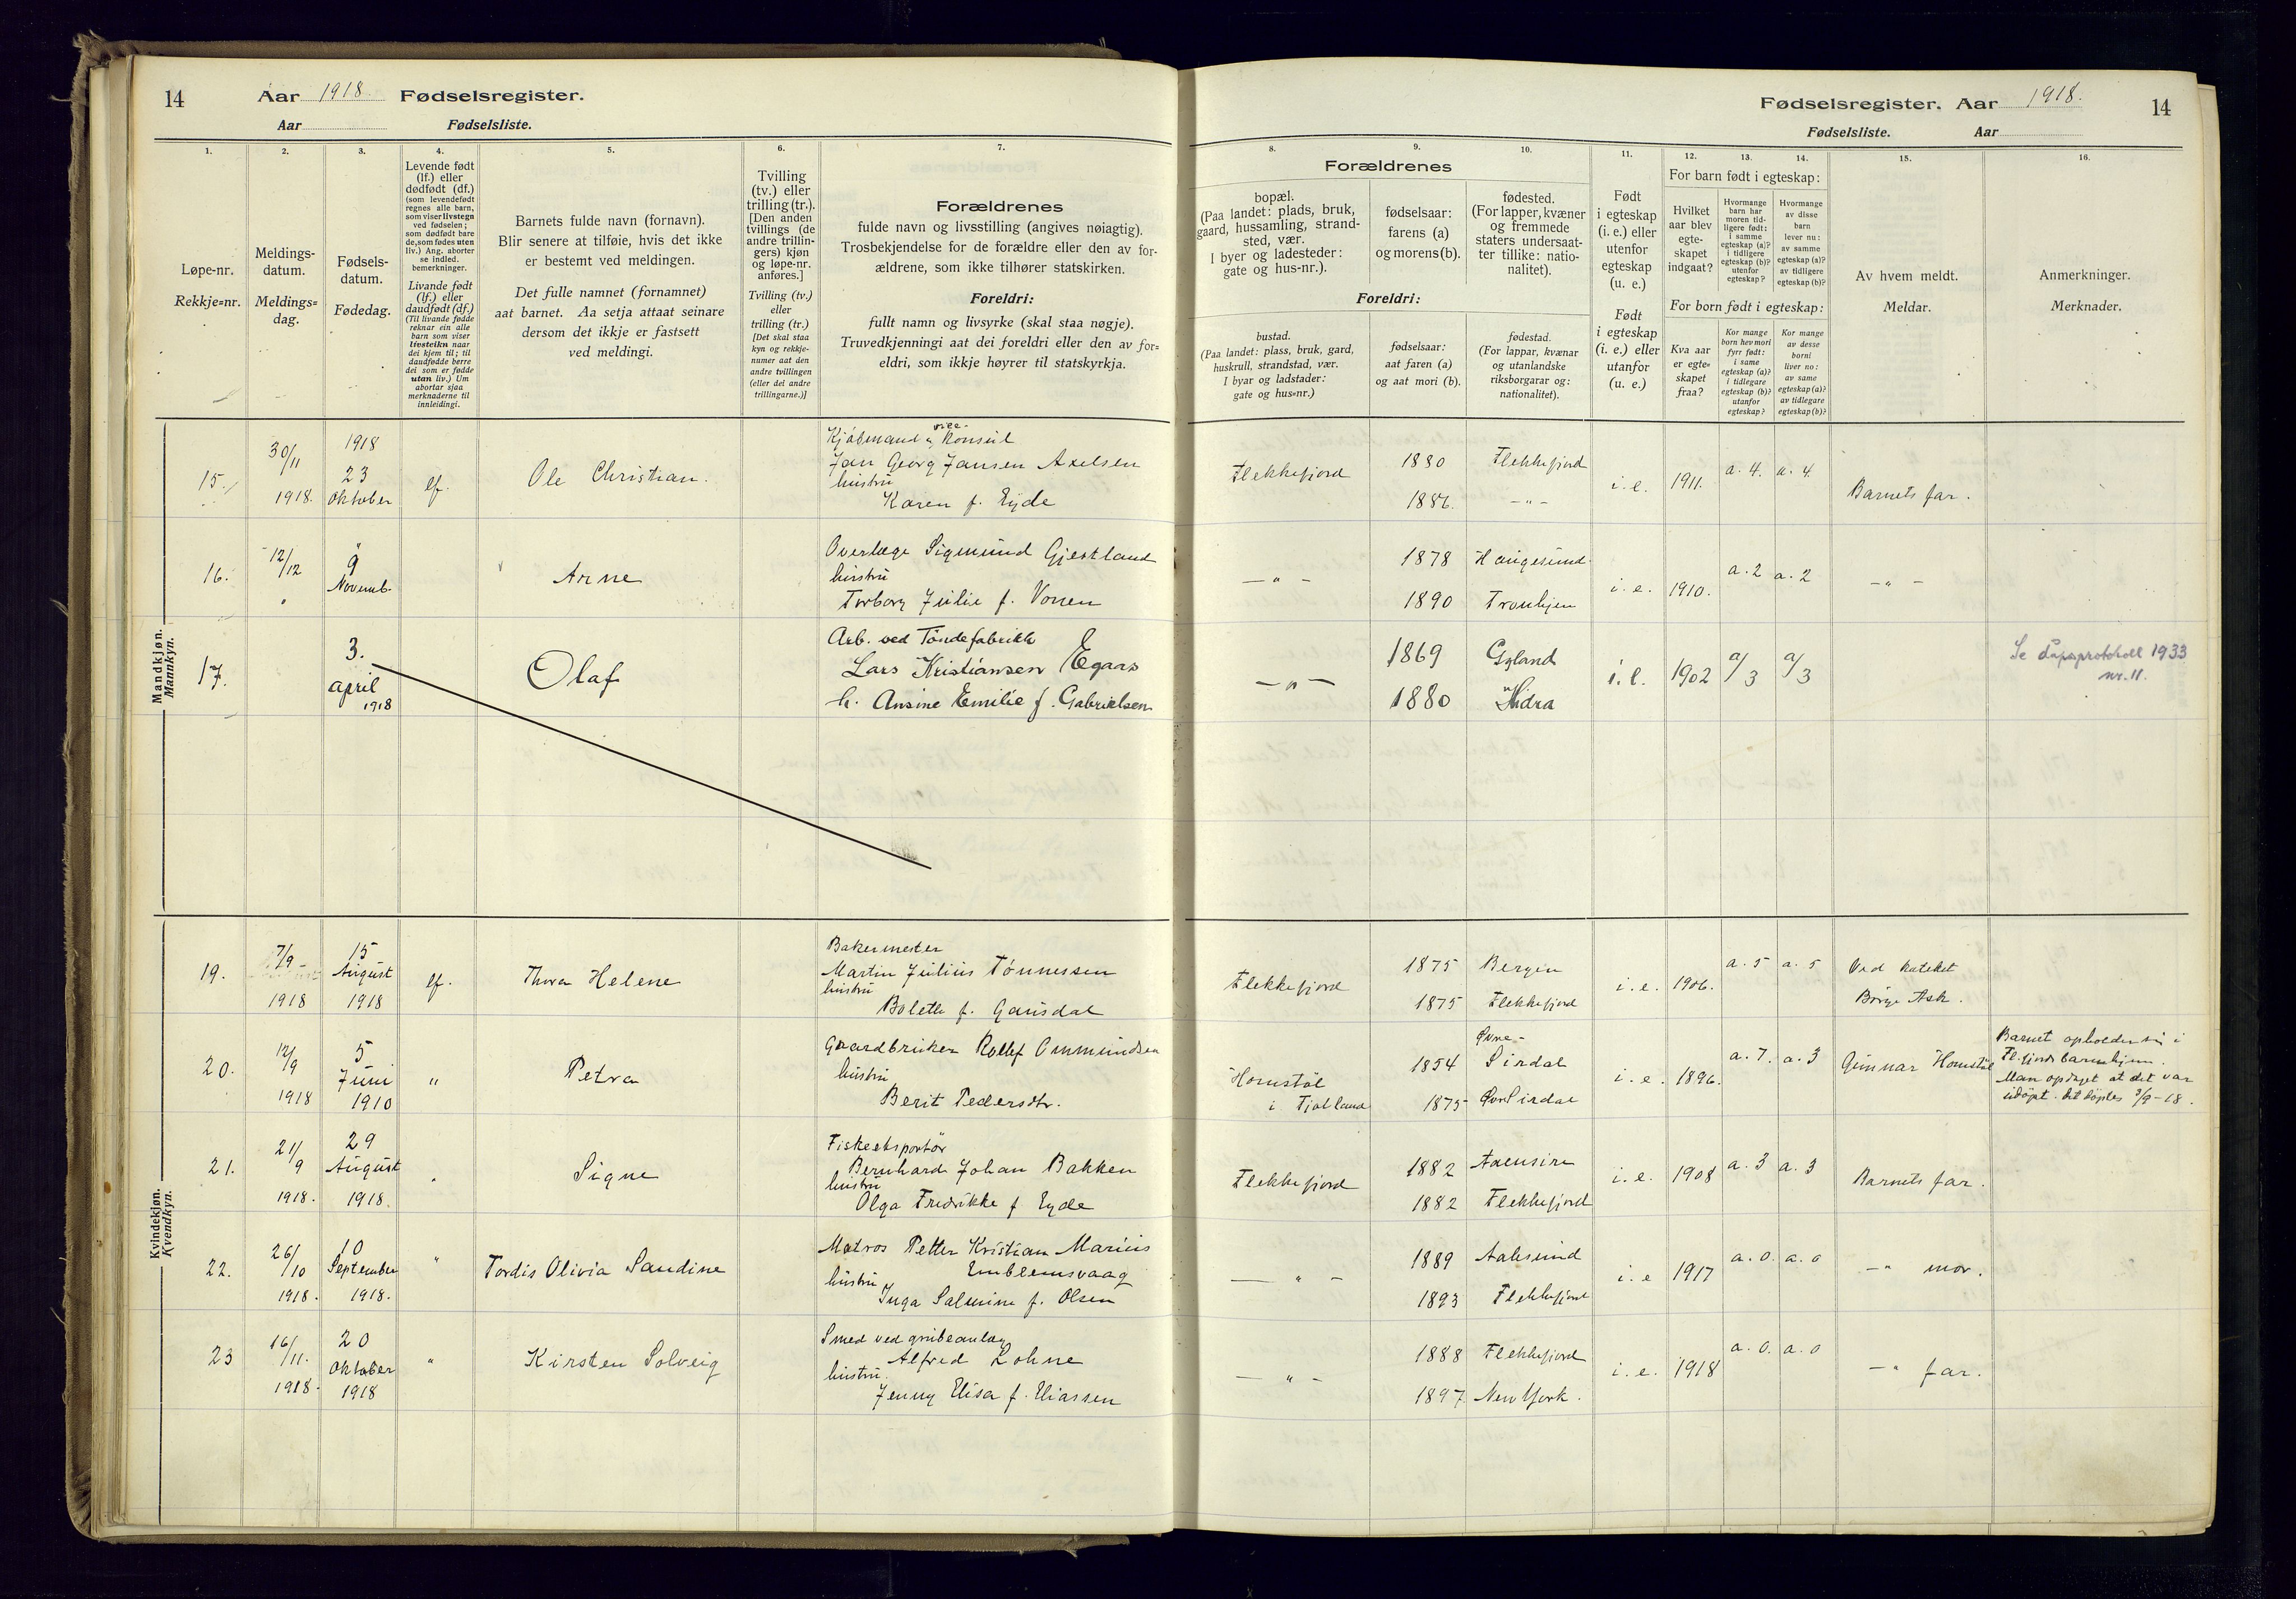 14 Aar 1918. Fødselsregister.
Aar Fødselsliste.
Fødselsregister. Aar 1918. 14
Fødselsliste. Aar
1.
Løpe-nr.
Rekkje-nr.
2.
Meldings-
datum.
Meldings-
dag.
3.
Fødsels-
datum.
Fødedag.
4.
Levende født
(lf.) eller
dødfødt (df.)
(som levendefødt
regnes alle barn,
som viser livstegn
ved fødselen;
som dødfødt bare
de, som fødes uten
liv.) Ang. aborter
se indled.
bemerkninger.
Livande født
(lf.) eller
daudfødt (df.)
(Til livande fødde
reknar ein alle
barn som viser
livsteikn naar
dei kjem til; til
daudfødde berre
dei som er fødde
utan liv.) Um
abortar sjaa
merknaderne til
innleidingi.
5.
Barnets fulde navn (fornavn).
Blir senere at tilføie, hvis det ikke
er bestemt ved meldingen.
Det fulle namnet (fornamnet)
aat barnet. Aa setja attaat seinare
dersom det ikkje er fastsett
ved meldingi.
6.
Tvilling
(tv.) eller
trilling (tr.).
[Den anden
tvillings (de
andre trillin-
gers) kjøn
og løpe-nr.
anføres.]
Tvilling (tv.)
eller
trilling (tr.)
[Det skal staa
kyn og rekkje-
numer aat den
andre tvillingen
(eller dei andre
trillingarne.)]
7.
Forældrenes
fulde navn og livsstilling (angives nøiagtig).
Trosbekjendelse for de forældre eller den av for-
ældrene, som ikke tilhører statskirken.
Foreldri:
fullt namn og livsyrke (skal staa nøgje).
Truvedkjenningi aat dei foreldri eller den av for-
eldri, som ikkje høyrer til statskyrkja.
Forældrenes
8.
bopæl.
(Paa landet: plads, bruk,
gaard, hussamling, strand-
sted, vær.
I byer og ladesteder:
gate og hus-nr.).
9.
fødselsaar:
farens (a)
og morens (b).
10.
fødested.
(For lapper, kvæner
og fremmede
staters undersaat-
ter tillike: natio-
nalitet).
Foreldri:
bustad.
(Paa landet: plass, bruk, gard,
huskrull, strandstad, vær.
I byar og ladstader:
gate og hus-nr.)
fødselsaar:
aat faren (a)
og aat mori (b).
fødestad.
(For lappar, kvænar
og utanlandske
riksborgarar og:
nationalitet).
11.
Født
i egteskap
(i. e.) eller
utenfor
egteskap
(u. e.)
Født
i egteskap
(i. e.) eller
utanfor
(u. e.)
12. 13. 14.
For barn født i egteskap:
Hvilket
aar blev
egte-
skapet
indgaat?
Hvormange
barn har
moren tid-
ligere født:
i samme
egteskap (a)?
i tidligere
egteskap (b)?
utenfor
egteskap?
Hvormange
av disse
barn
lever nu:
av samme
egteskap (a)?
av tidligere
egteskap (b)?
For born født i egteskap:
Kva aar
er egte-
skapet
fraa?
Kor mange
born hev mori
fyrr født:
i same
egteskap (a)?
i tidlegare
egteskap (b)?
utanfor
egteskap?
Kor mange
av desse
borni
liver no:
av same
egteskap (a)?
av tidlegare
egteskap (b)?
15.
Av hvem meldt.
Meldar.
16.
Anmerkninger.
Merknader.
Mandkjøn.
Mannkyn.
15.
30/11
1918.
1918
23
Oktober
lf.
Ole Christian.
Kjøbmand og vice-Konsul
Jan Georg Jansen Axelsen
hustru
Karen f. Eyde
Flekkefjord
1880 Flekkefjord
1886. -"-
i. e. 1911. a. 4. a. 4.
Barnets far.
16.
12/12
"
"
9
Novemb.
Arne
Overlæge Sigmund Gjestland
hustru
Torborg Julie f. Vonen
-"-
1878 Haugesund.
1890 Tronhjem
i. e. 1910. a. 2 a. 2 -"-
17.
3.
april
1918
Olaf
Arb. ved Tøndefabrikk
Lars Kristiansen Egaas
h. Ansine Emilie f. Gabrielsen
-"-
1869 Gyland
1880 Hidra
i. e. 1902 a/3 a/3
Se dåpsprotokoll 1933
nr. 11.
Kvindekjøn.
Kvendkyn.
19.
7/9 -
1918
15
August
1918
lf.
Thora Helene
Bakermester
Martin Julius Tønnessen
hustru
Bolette f. Gausdal
Flekkefjord
1875 Bergen
1875 Flekkefjord
i. e. 1906. a. 5 a. 5
Ved kateket
Børge Ask.
20.
12/9
1918
5
Juni
1910
"
Petra
Gaardbruker Rollef Ommundsen
hustru
Berit Pedersdtr.
Homstøl
i Tjølland
1854 Øvre-Sirdal
1875 Øvre Sirdal
i. e. 1896. a. 7. a. 3
Gunnar Homstøl
Barnet opholder sig i
Fl.fjords barnehjem.
Man opdaget at det var
udøpt. Det døptes 8/9-18.
21.
21/9
1918.
29
August
1918.
"
Signe
Fiskeeksportør
Bernhard Johan Bakken
hustru
Olga Fredrikke f. Eyde
Flekkefjord
1882 Aaensire
1882 Flekkefjord
i. e. 1908 a. 3 a. 3
Barnets far.
22.
26/10
1918.
10
September
1918.
"
Tordis Olivia Sandine
Matros Petter Kristian Marius
Emblemsvaag
hustru
Inga Salmine f. Olsen
-"-
1889 Aalesund
1893 Flekkefjord
i. e 1917 a. 0. a. 0
-" mor.
23
16/11.
1918.
20
Oktober
1918
"
Kirsten Solveig
Smed ved grubeanlæg
Alfred Lohne
hustru.
Jenny Elisa f. Eliassen
-"-
1888 Flekkefjord
1897. New York.
i. e. 1918 a. 0. a. 0
-" far.